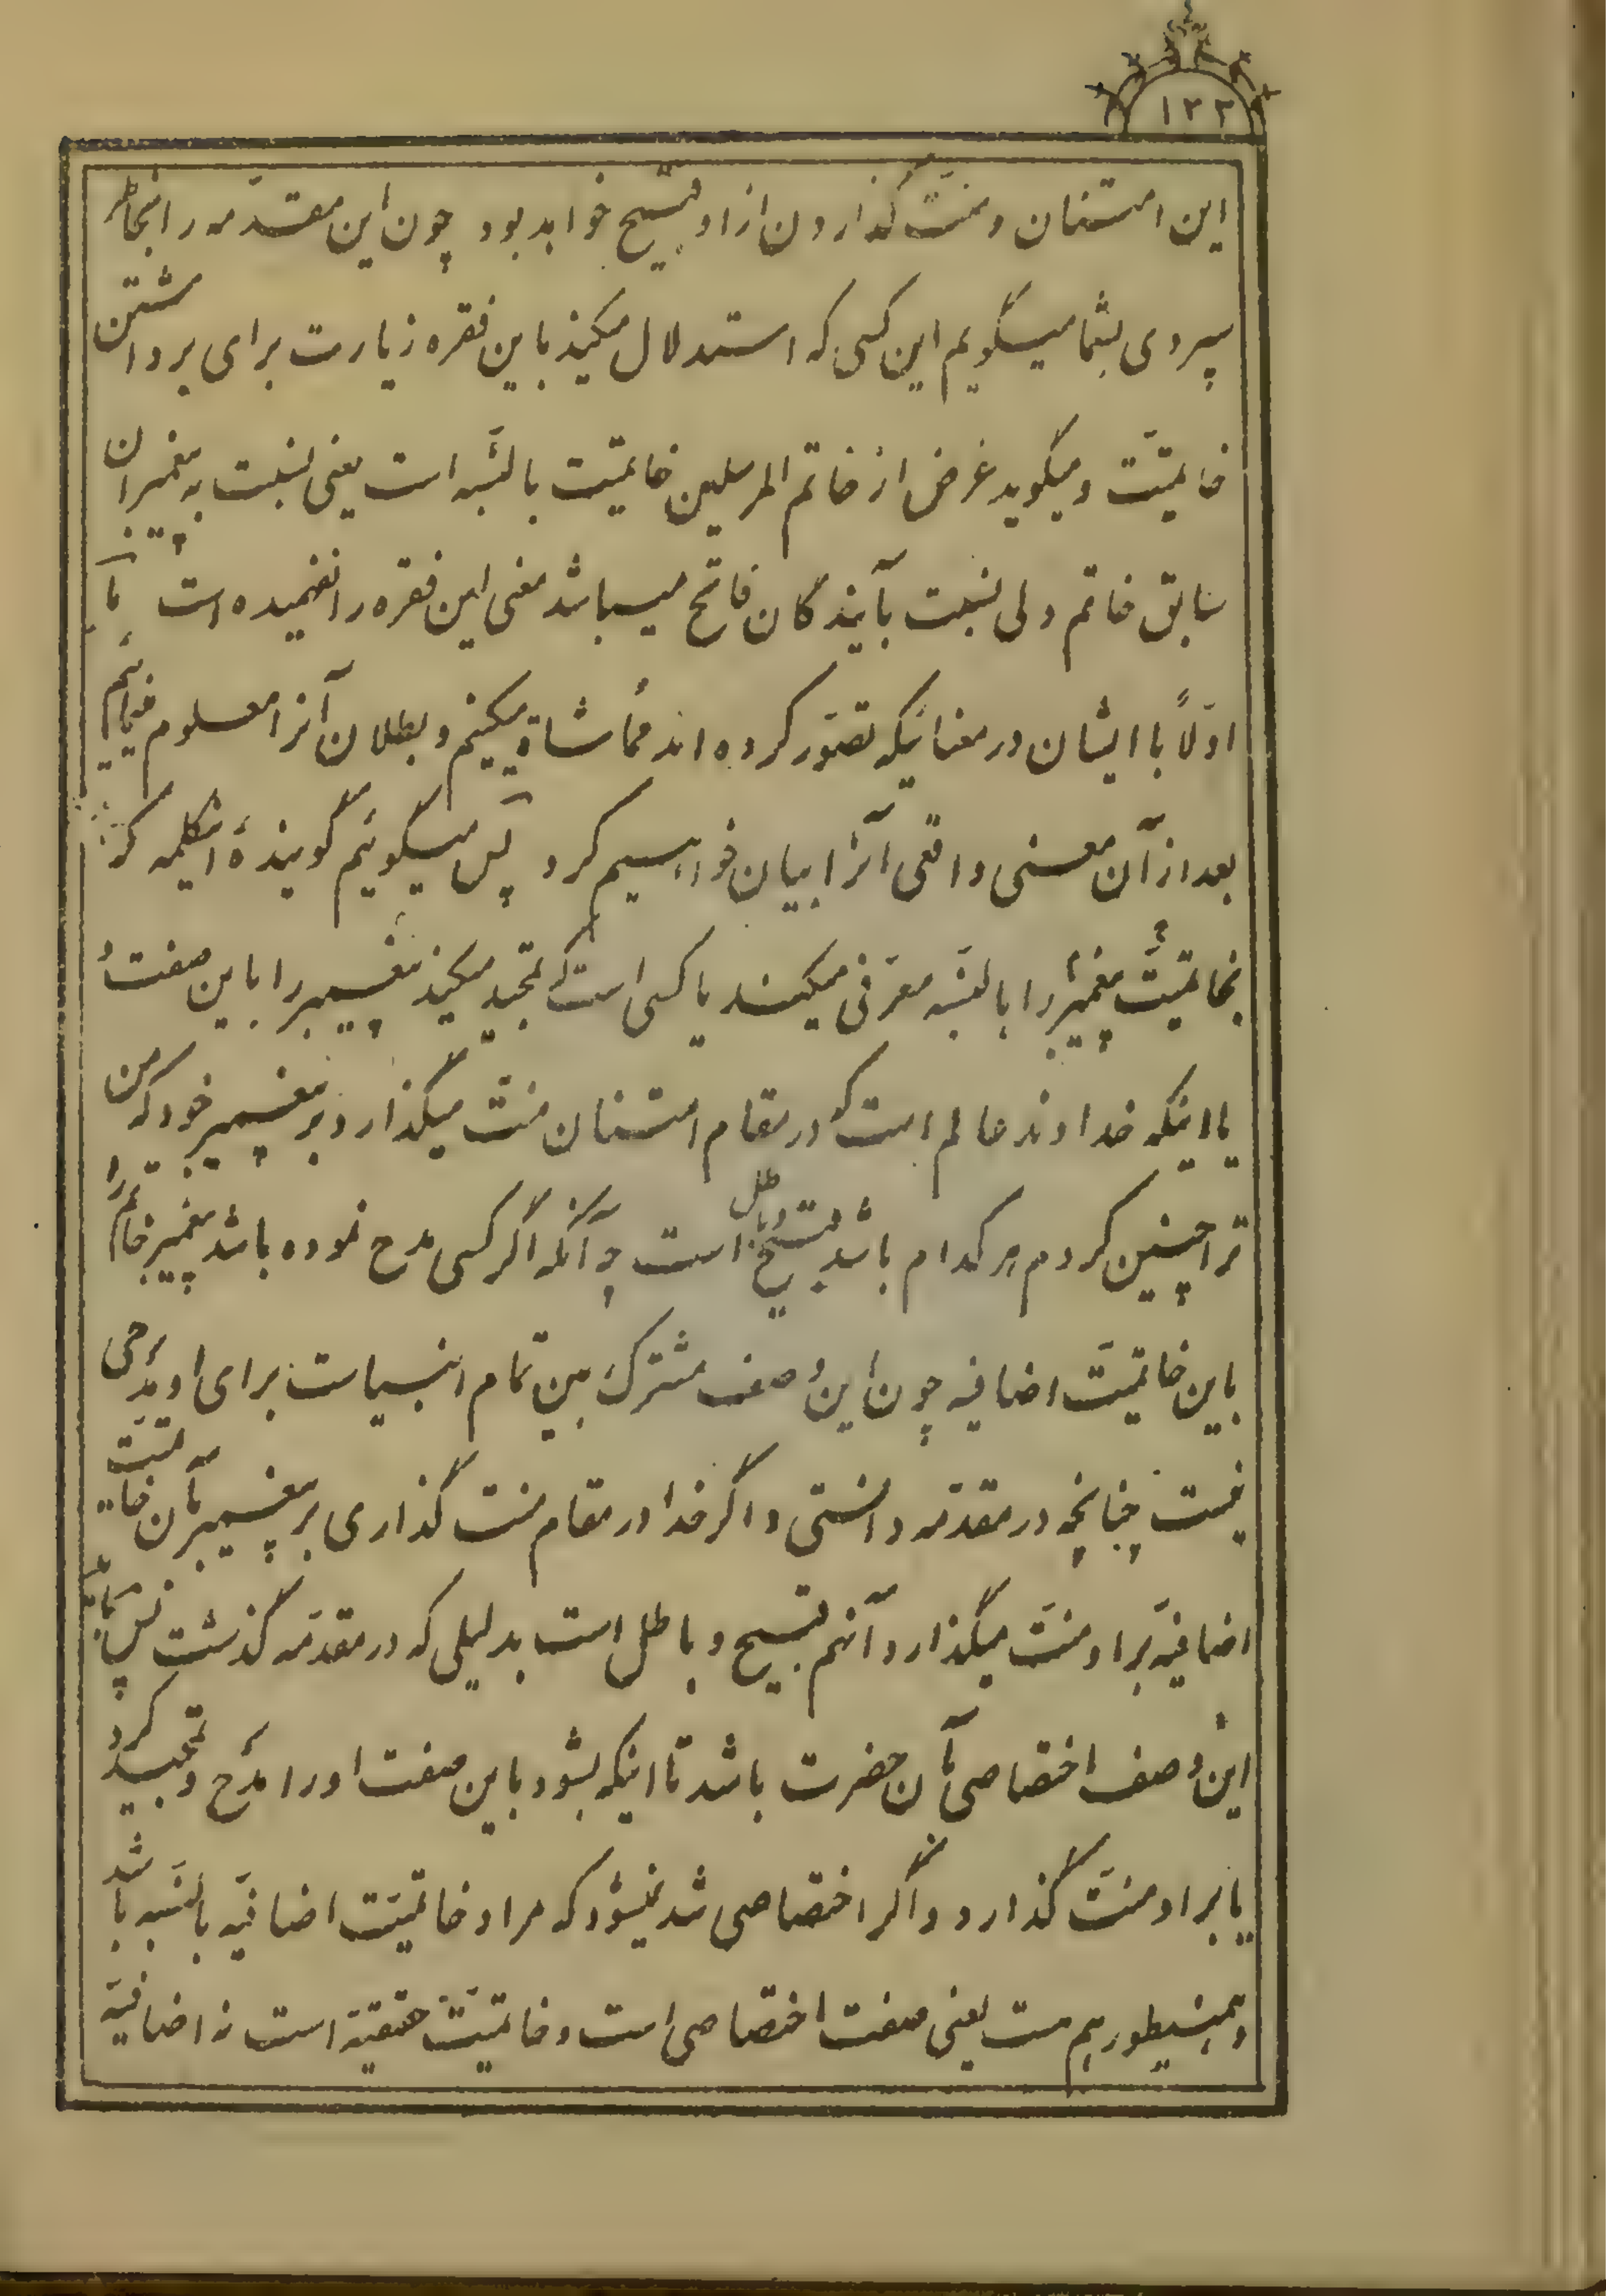 ۱۳۳
این امتنان و منّت گذاردن از او قبیح خواهد بود چون این مقدّمه را بخاطر
سپردی بشما میگویم این کسی که استدلال میکند باین فقره زیارت برای برداشتن
خاتمیّت و میگوید غرض از خاتم المرسلین خاتمیّت بالنّسبه است یعنی نسبت به پیغمبران
سابق خاتم ولی نسبت بآیندگان فاتح میباشد معنی این فقره را نفهمیده است ما
اوّلاً با ایشان در معنائیکه تصوّر کرده اند مماشاة میکنیم و بطلان آنرا معلوم مینمائیم
بعد از آن معنی واقعی آنرا بیان خواهیم کرد پس میگوئیم گویندهٔ اینکلمه که
بخاتمیّت پیغمبر را بالنّسبه معرّفی میکند یا کسی است که تمجید میکند پیغمبر را باین صفت
یا اینکه خداوند عالم است که در مقام امتنان منّت میگذارد بر پیغمبر خود که من
ترا چنین کردم هر کدام باشد قبیح و باطل است چه آنکه اگر کسی مدح نموده باشد پیغمبر خاتم را
باین خاتمیّت اضافیه چون این وصف مشترک بین تمام انبیاست برای او مدحی
نیست چنانچه در مقدّمه دانستی و اگر خدا در مقام منت گذاری بر پیغمبر بآن خاتمیّت
اضافیّه بر او منّت میگذارد آنهم قبیح و باطل است بدلیلی که در مقدّمه گذشت پس باید
این وصف اختصاصی بآن حضرت باشد تا اینکه بشود باین صفت او را مدح و تمجید کرد
یا بر او منّت گذارد و اگر اختصاصی شد نمیشود که مراد خاتمیّت اضافیّه بالنّسبه باشد
و همینطور هم هست یعنی صفت اختصاصی است و خاتمیّت حقیقیّة است نه اضافیّه